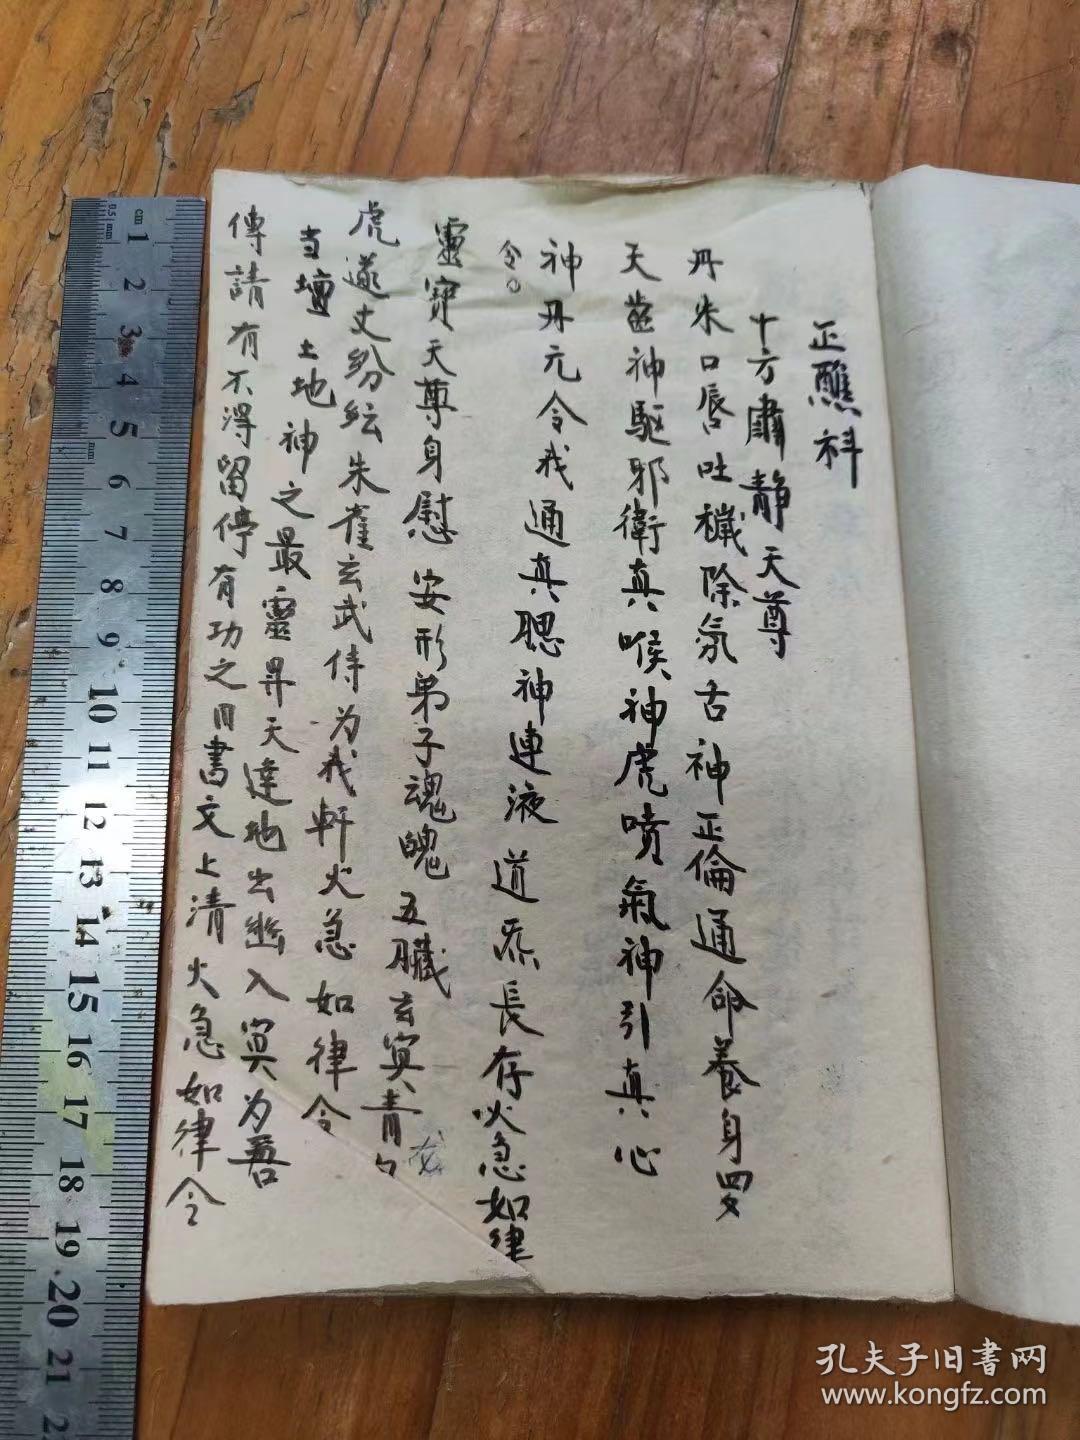 正醮科
十方肅静天尊
丹朱口唇吐穢除氛舌神正倫通命養身罗
天齒神驅邪衛真喉神虎噴氣神引真心
神丹元令我通真腮神連液道炁長存火急如律
令。
靈寶天尊身慰安形弟子魂魄五臟玄冥青
虎遂文紛紜朱雀玄武侍为我軒火急如律令
当壇土地神之最靈昇天達地出幽入冥为吾
傳請有不得留停有功之日書文上清火急如律令
cm 1 2 3 4 5 6 7 8 9 10 11 12 13 14 15 16 17 18 19 20 21
孔夫子旧書网
www.kongfz.com